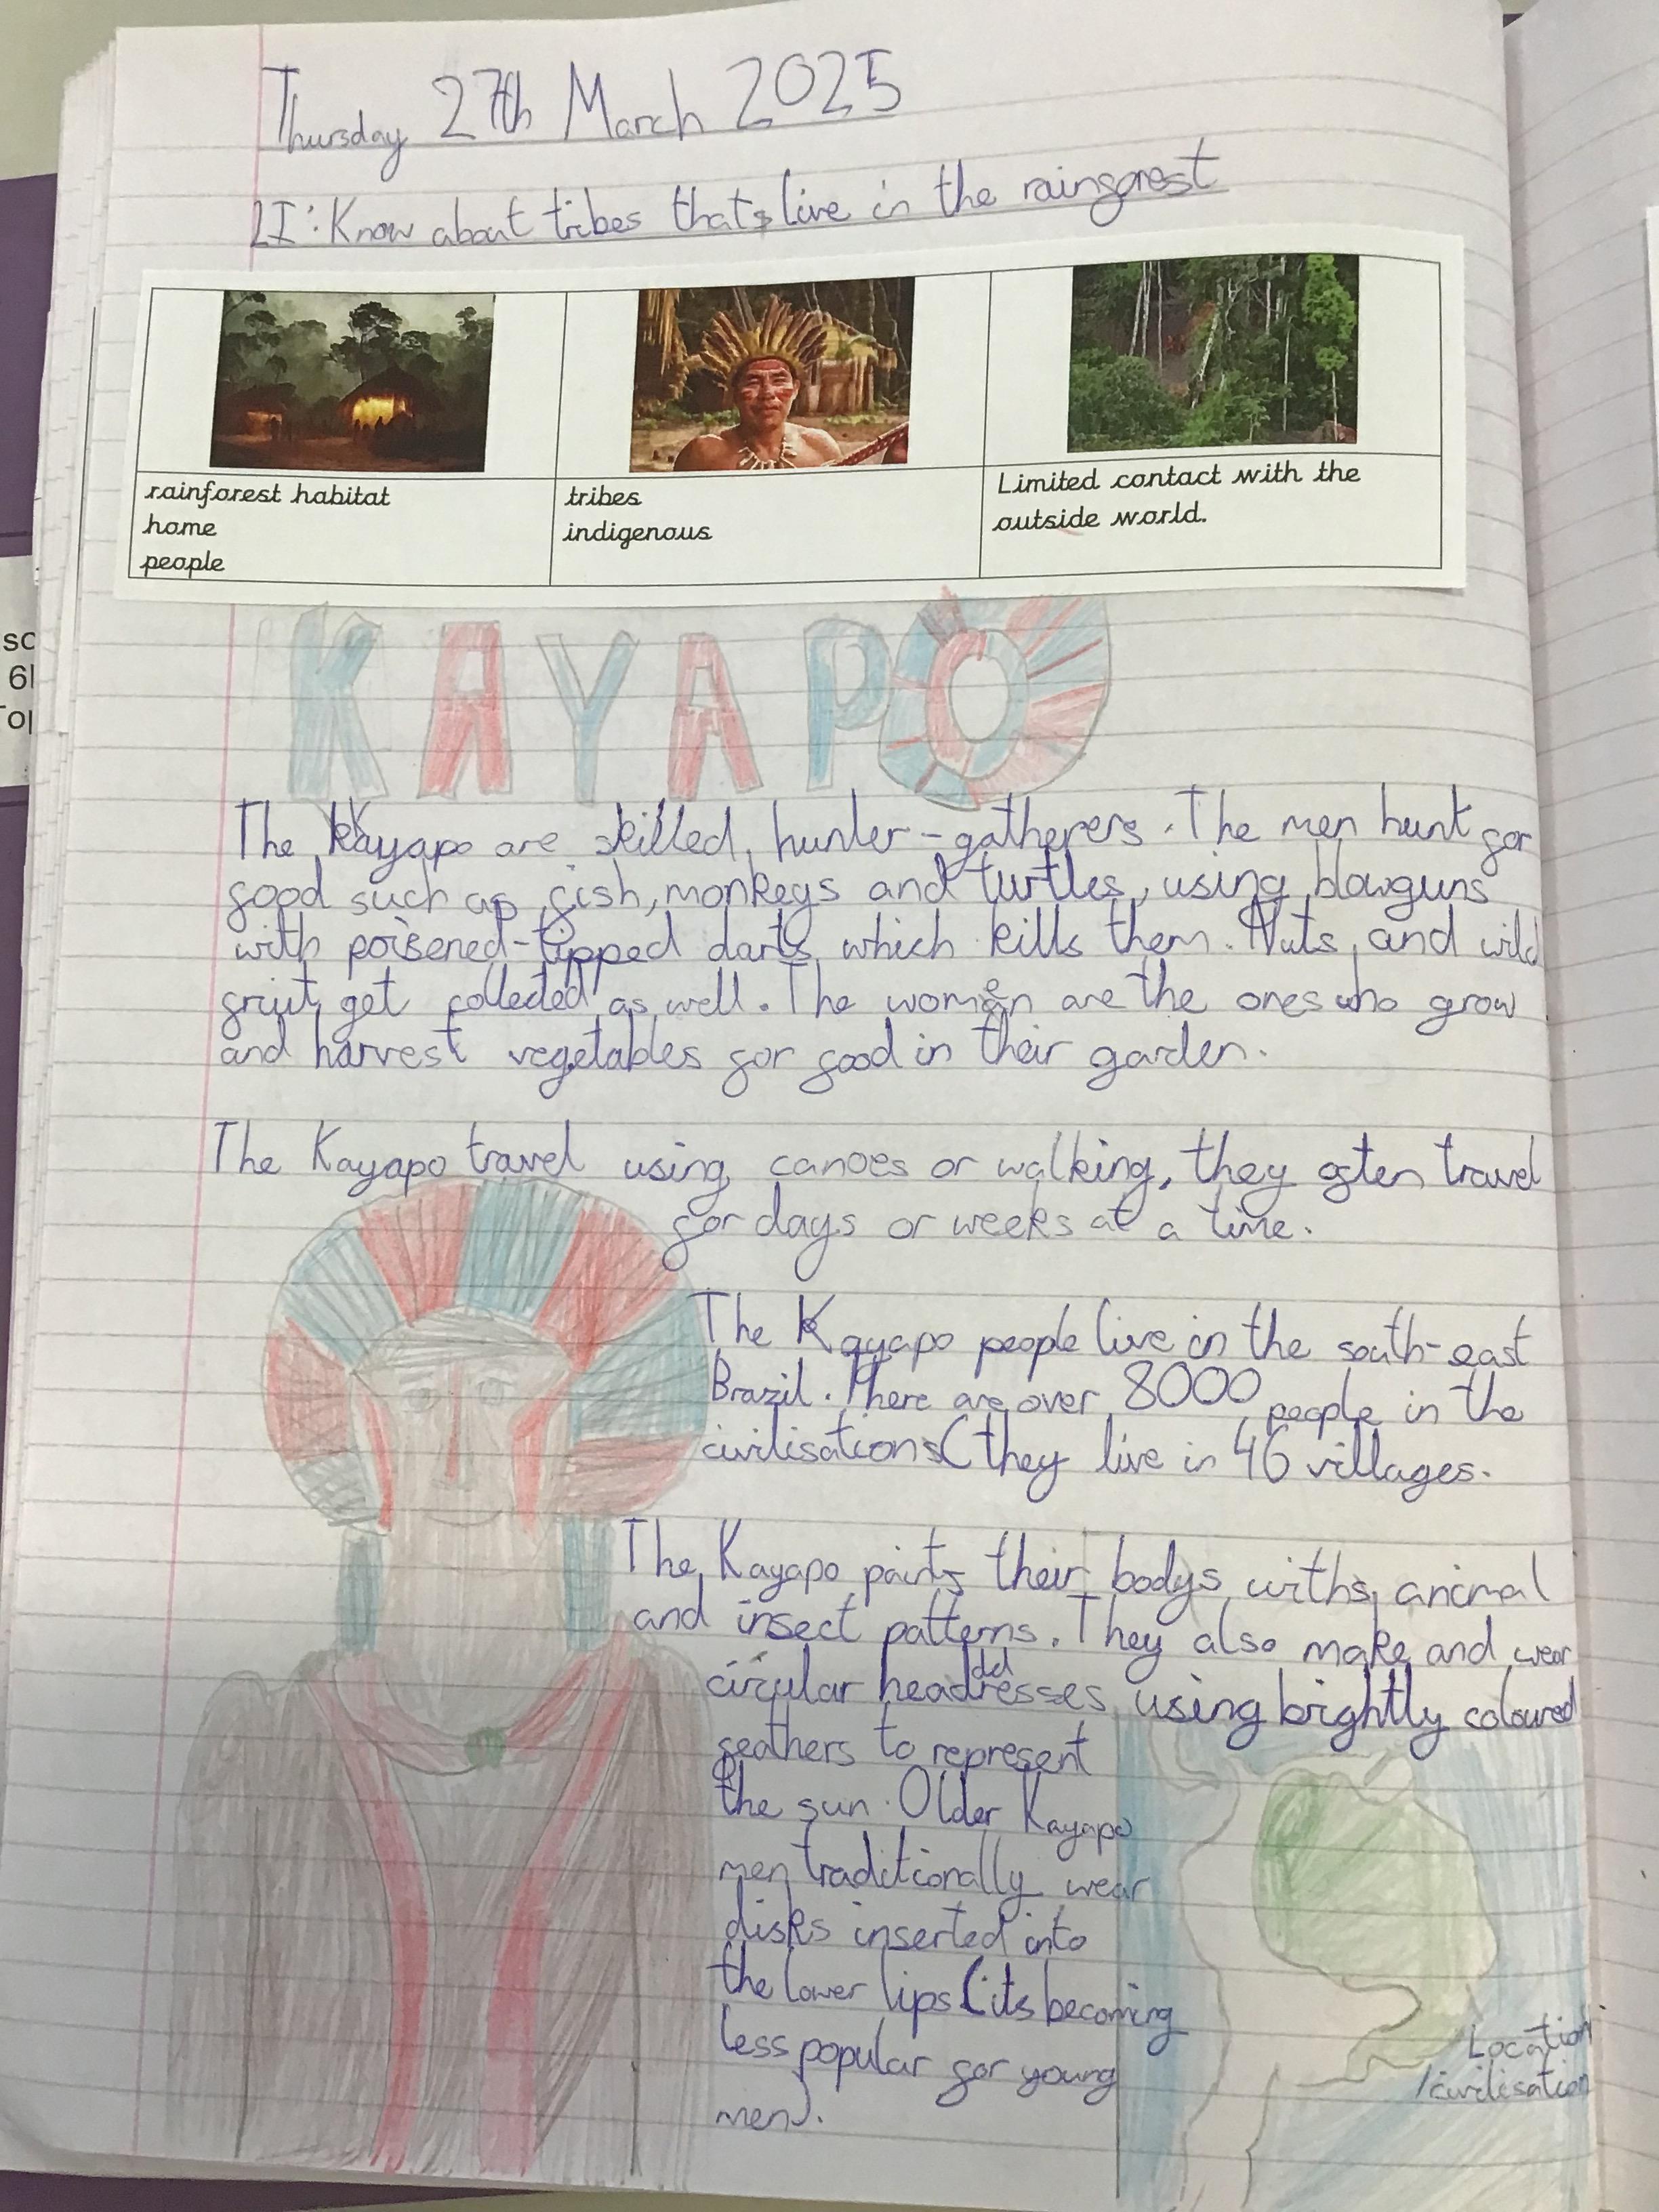 Thursday 27th March 2025
LI: Know about tribes that live in the rainforest
rainforest habitat
home
people
tribes
indigenous
Limited contact with the
outside world.
KAYAPO
The Kayapo are skilled hunter-gatherers. The men hunt for
food such as fish, monkeys and turtles, using blowguns
with poisened-tipped darts which kills them. Nuts and wild
fruit get collected as well. The women are the ones who grow
and harvest vegetables for food in their garden.
The Kayapo travel using canoes or walking, they often travel
for days or weeks at a time.
The Kayapo people live in the south-east
Brazil. There are over 8000 people in the
civilisations(they live in 46 villages.
The Kayapo paint their bodys with animal
and insect patterns. They also make and wear
circular headdresses using brightly coloured
feathers to represent
the sun. Older Kayapo
men traditionally wear
disks inserted into
the lower lips (its becoming
less popular for young
men).
Location
/civilisation